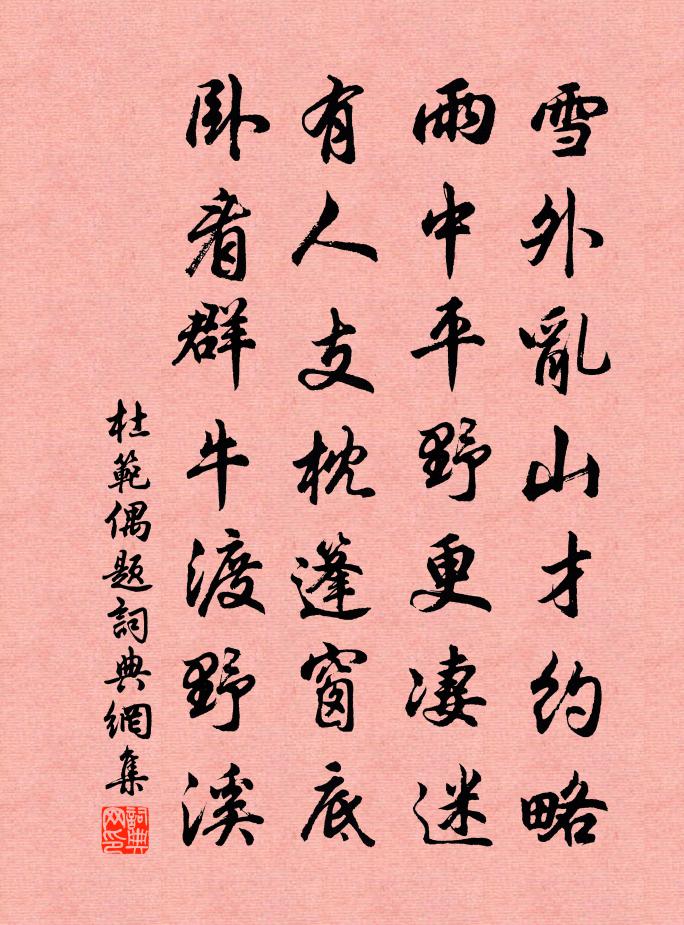 雪外亂山才約略
雨中平野更凄迷
有人支枕篷窗底
卧看群牛渡野溪
杜範偶題詞典網集
詞典网印